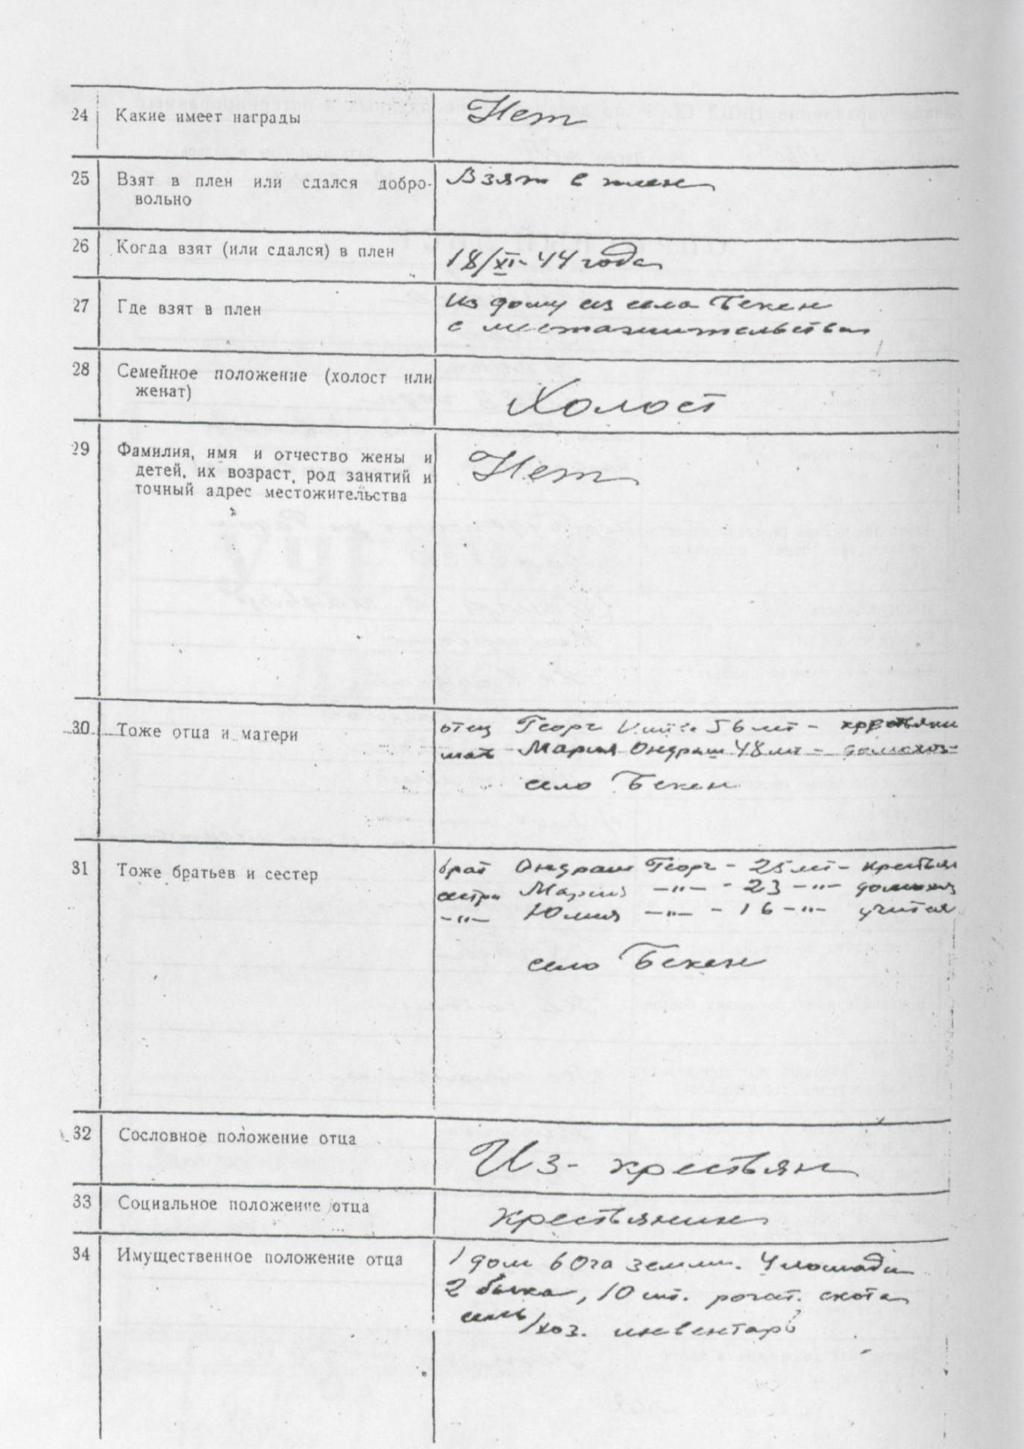 24 Какие имеет награды Нет
25 Взят в плен или сдался добро- Взят в плен
вольно
26 Когда взят (или сдался) в плен 18/XI-44 года
27 Где взят в плен Из дому из села Бекен
с местажительства
28 Семейное положение (холост или
женат) Холост
29 Фамилия, имя и отчество жены и Нет
детей, их возраст, род занятий и
точный адрес местожительства
30 Тоже отца и матери отец Георг 56 лет - крестьянин
мать Мария Ондраш 48 лет - домохоз-
село Бекен
31 Тоже братьев и сестер брат Ондраш Георг - 25 лет - крестьян
сестра Мария —"— - 23 —"— домохоз
—"— Юлия —"— - 16 —"— учится
село Бекен
32 Сословное положение отца Из-крестьян
33 Социальное положение отца крестьянин
34 Имущественное положение отца 1 дом 60га земли. 4 лошади
2 быка, 10 шт. рогат. скота
сель/хоз. инвентарь